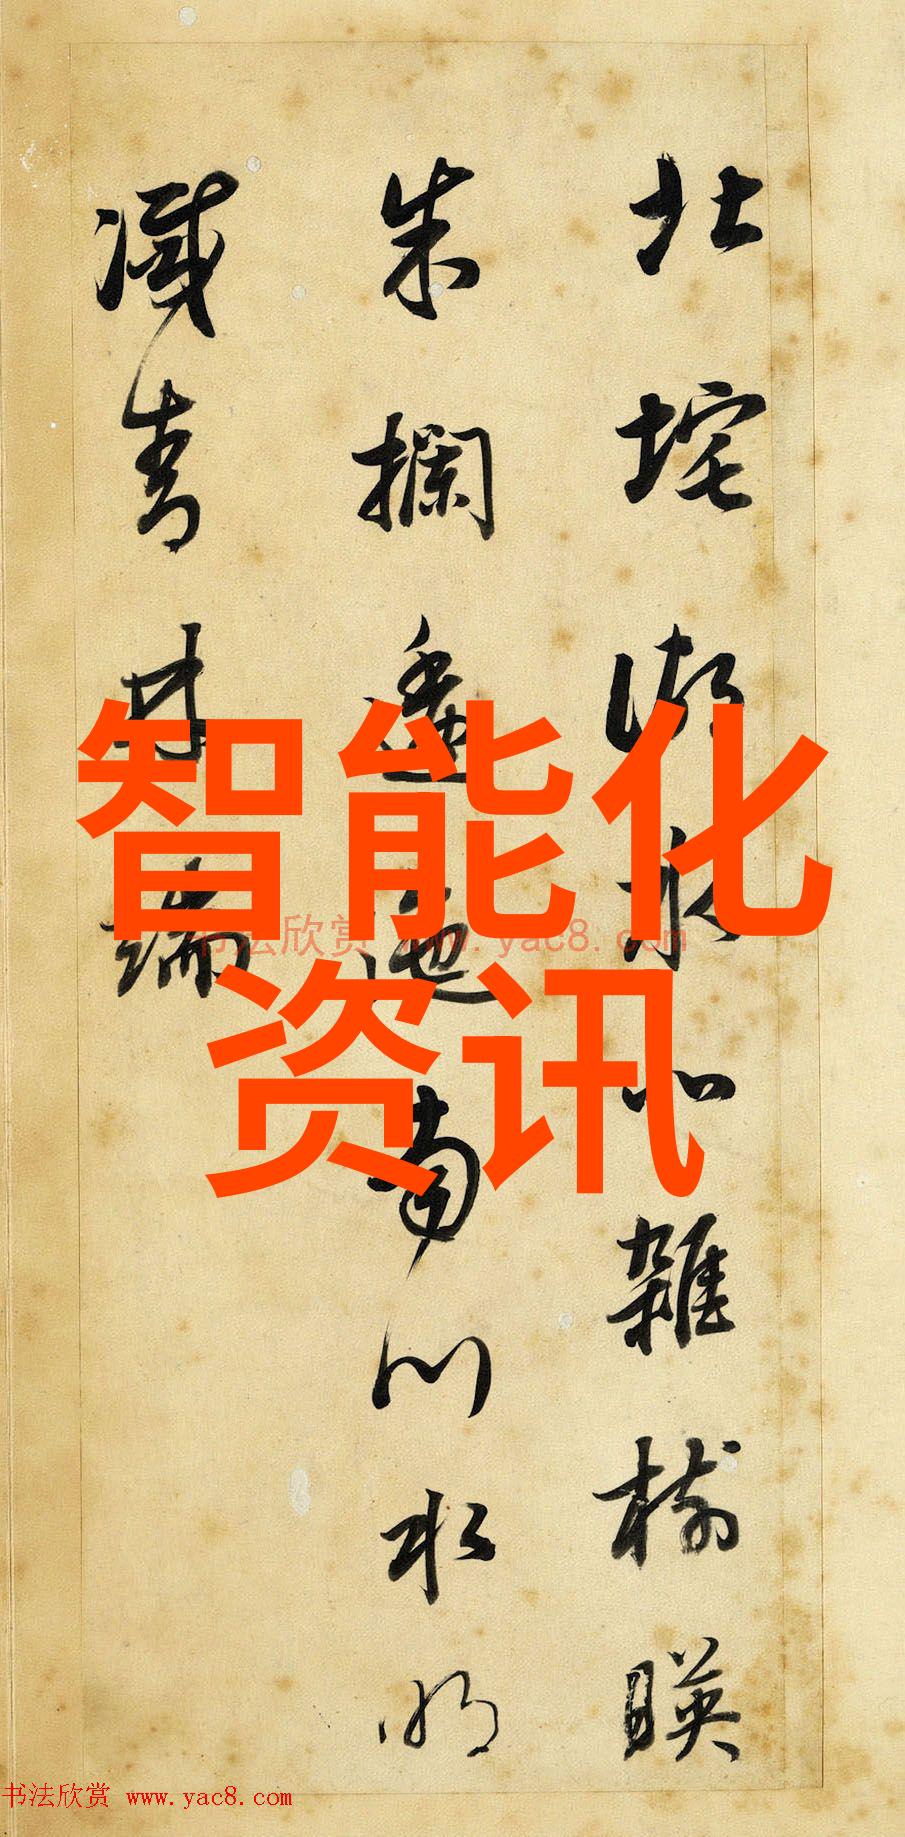 北垞湖水北雜樹暎
朱欄逶迤南川水明
滅青林端
智能化
资讯
书法欣赏 www.yac8.com
书法欣赏 www.yac8.com